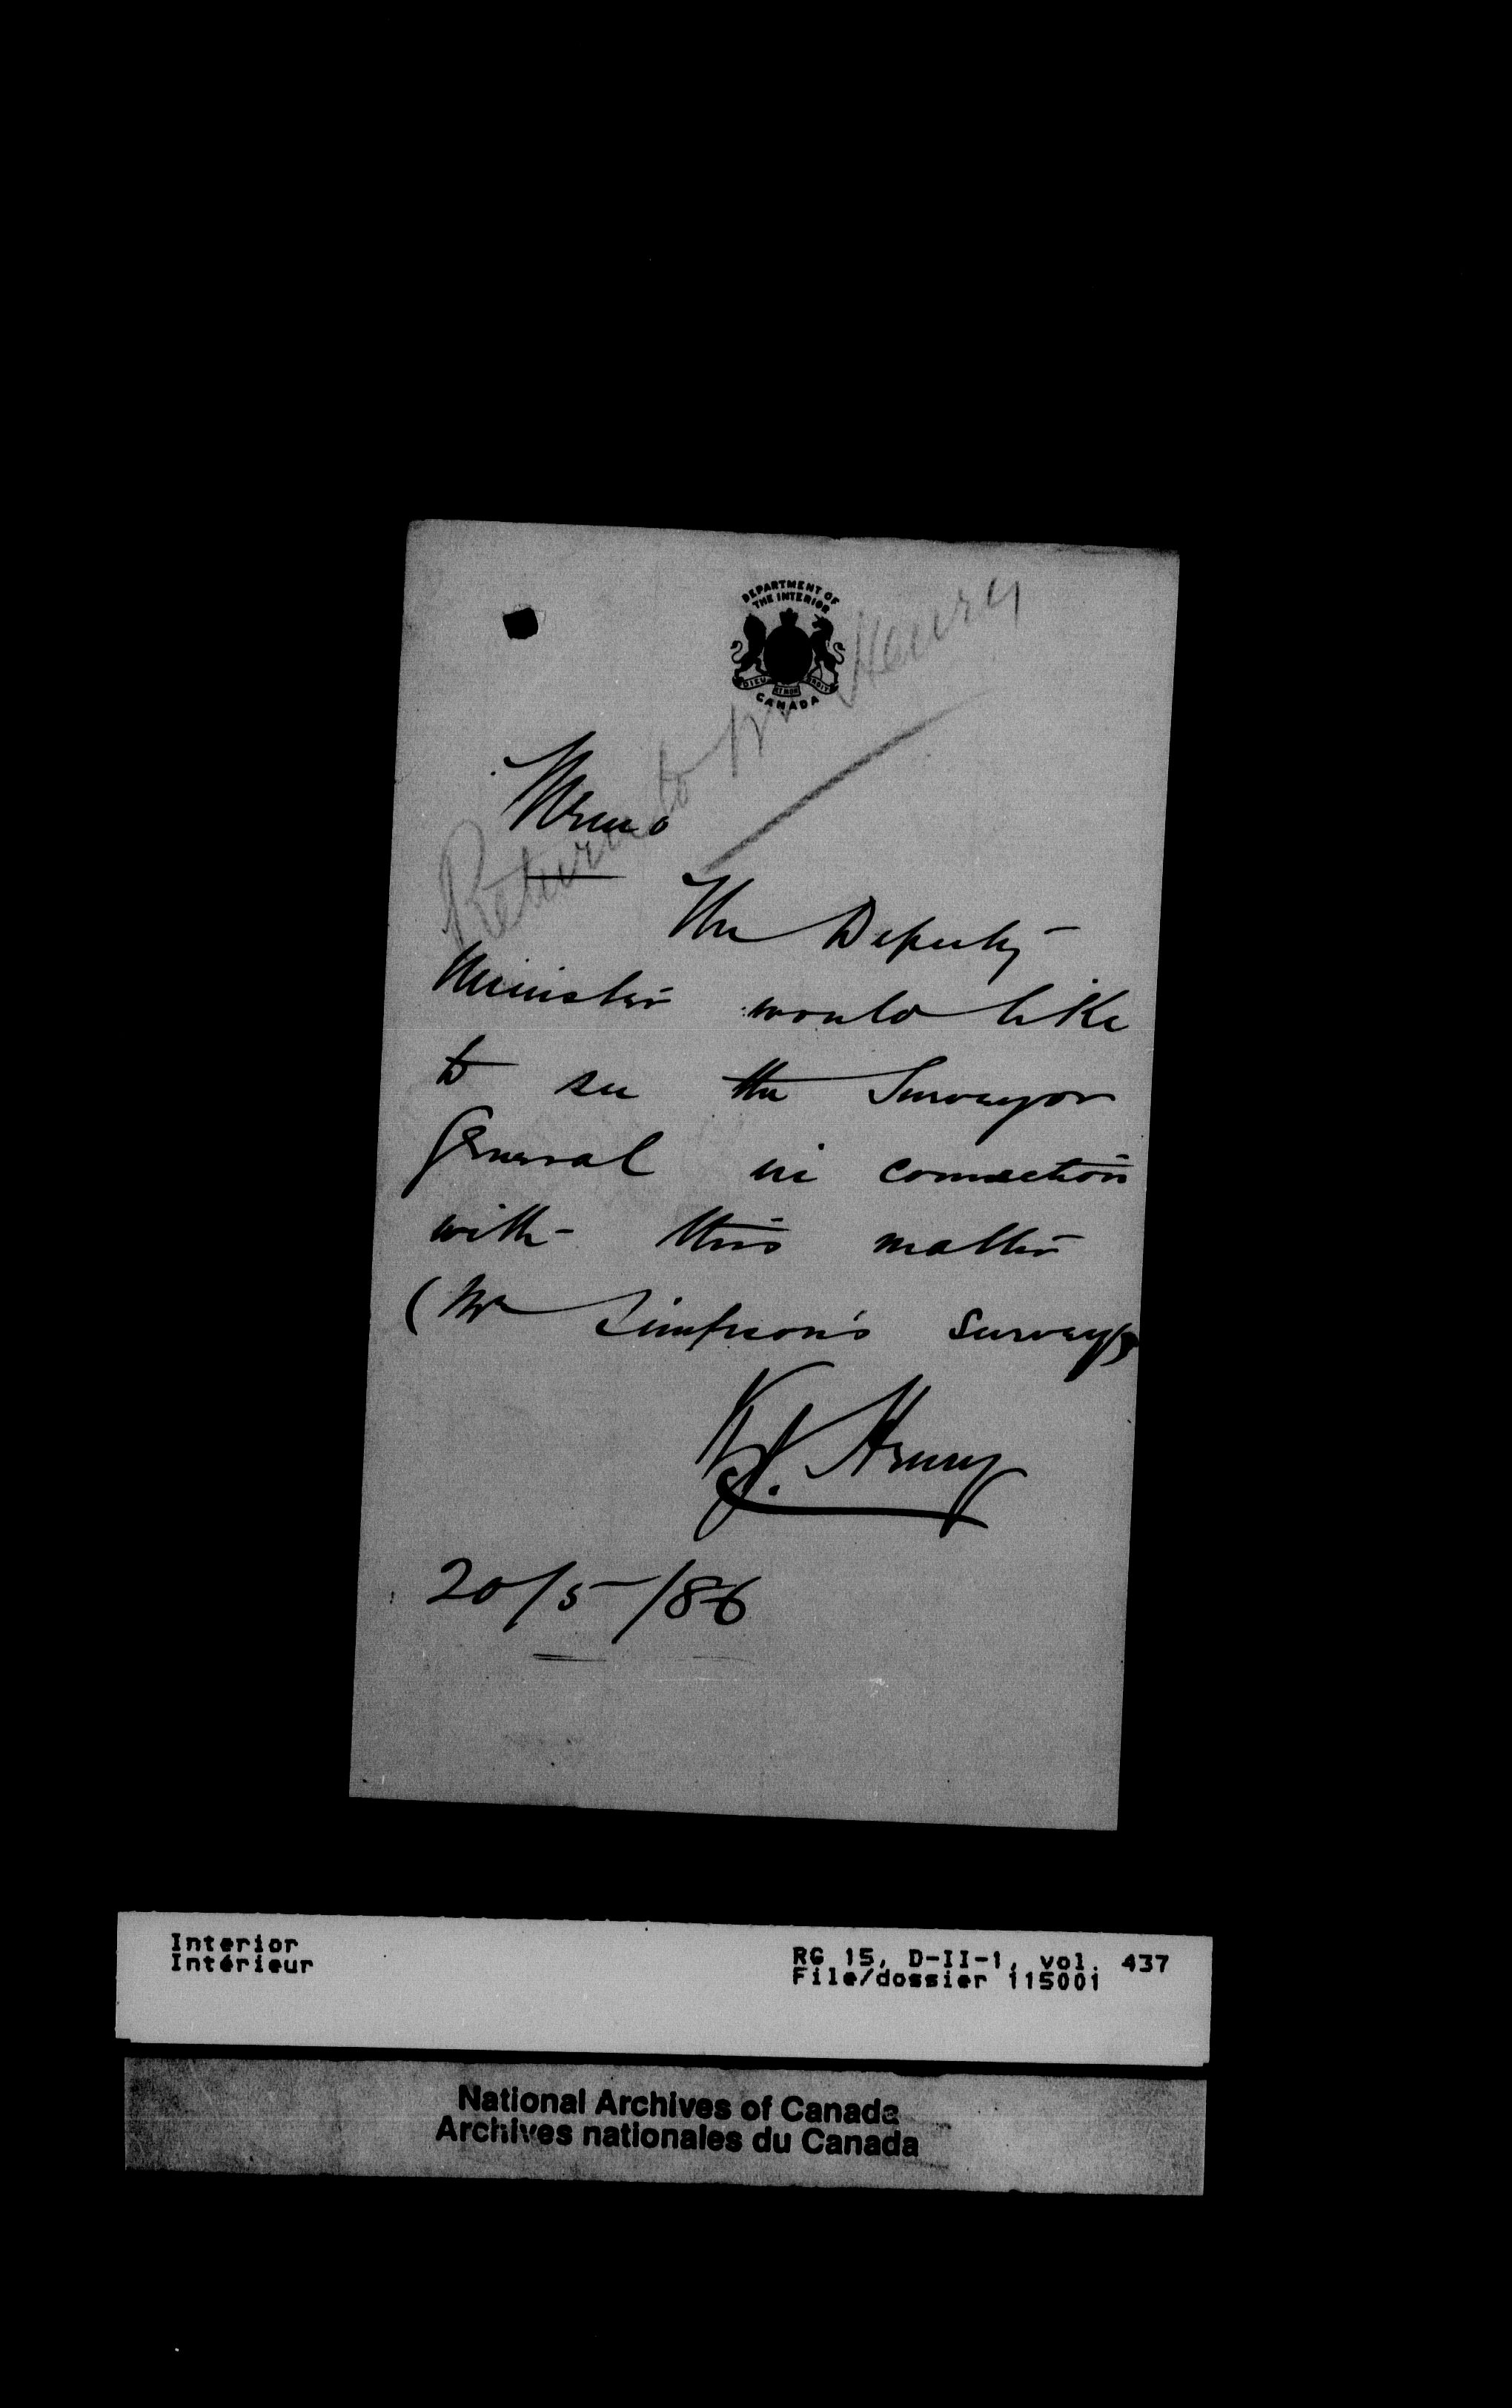 DEPARTMENT OF
THE INTERIOR
DIEU ET MON DROIT
CANADA
Return to Mr Henry
Memo
The Deputy
Minister would like
to see the Surveyor
General in connection
with this matter
(Mr Simpson's Surveys)
K.J. Henry
20/5/86
Interior
Intérieur
RG 15, D-II-1, vol. 437
File/dossier 115001
National Archives of Canada
Archives nationales du Canada